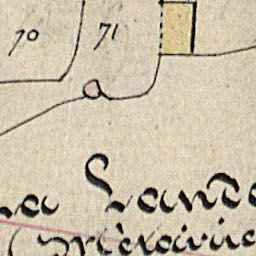 70 71
a
La Lande
Métairie